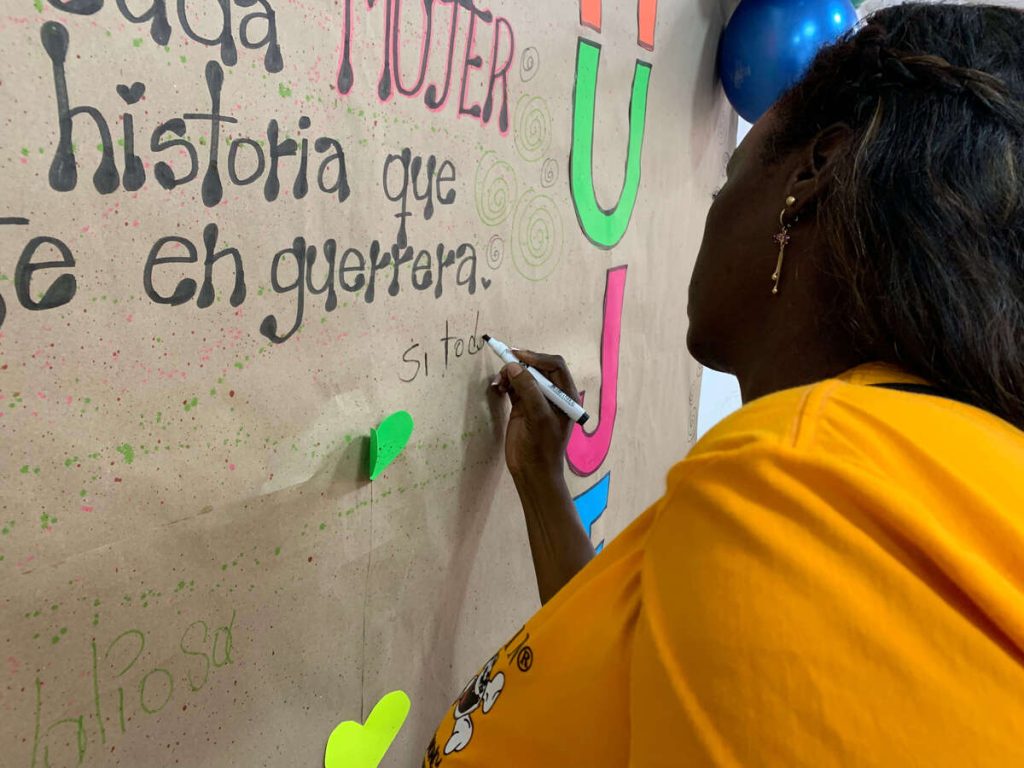 cada MUJER
historia que
te en guerrera.
SI tod
aliosa
U
J